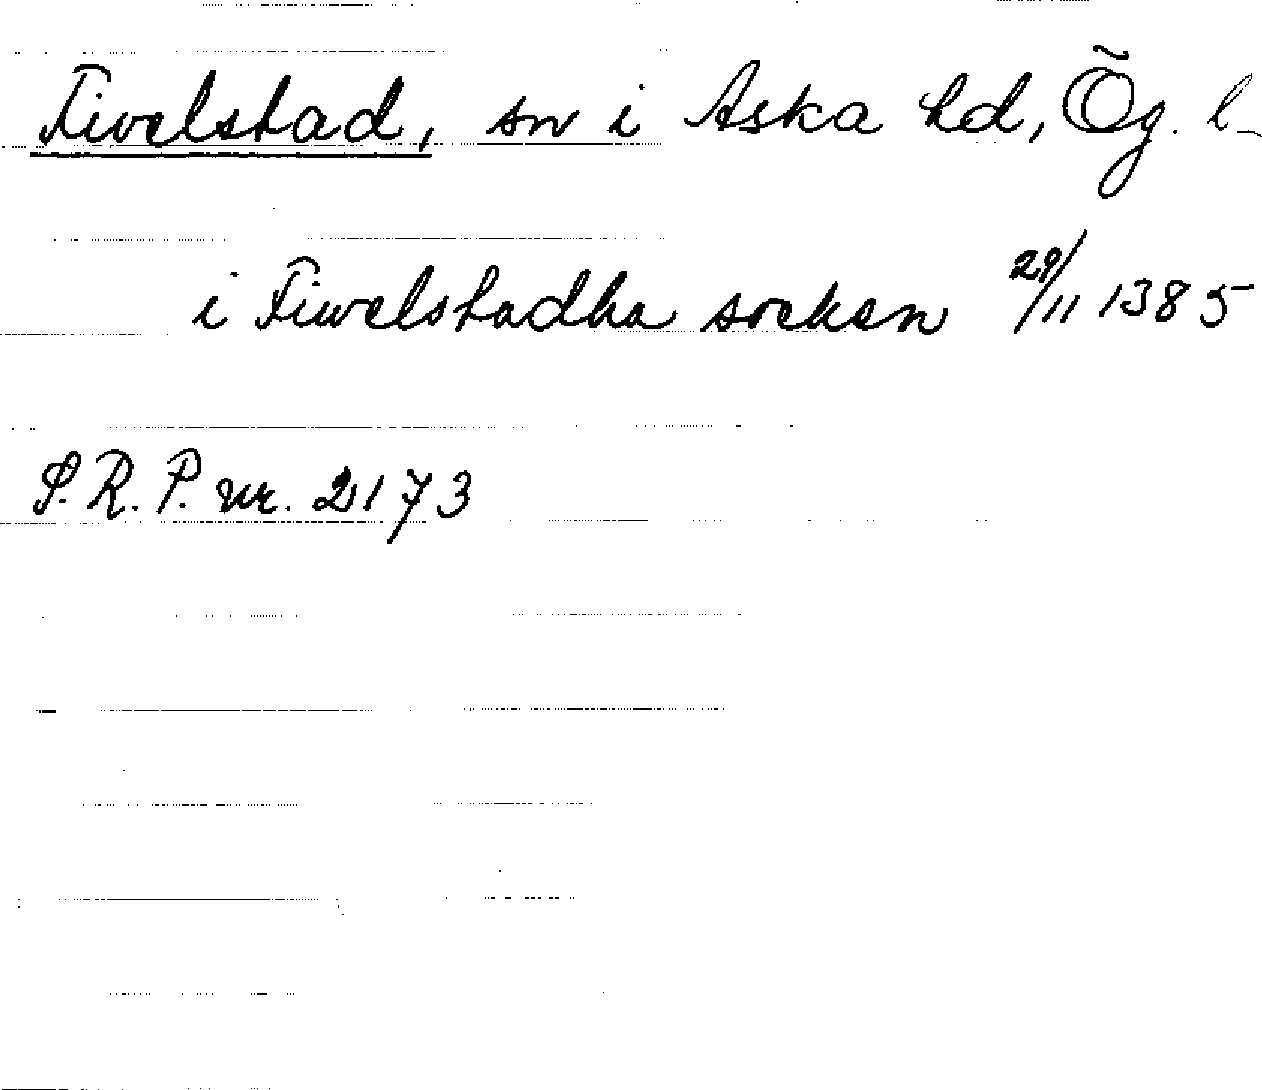 Fivelstad, sn i Aska hd, Ög. l
i Fiwelstadha socken 29/11 1385
S. R. P. nr. 2173